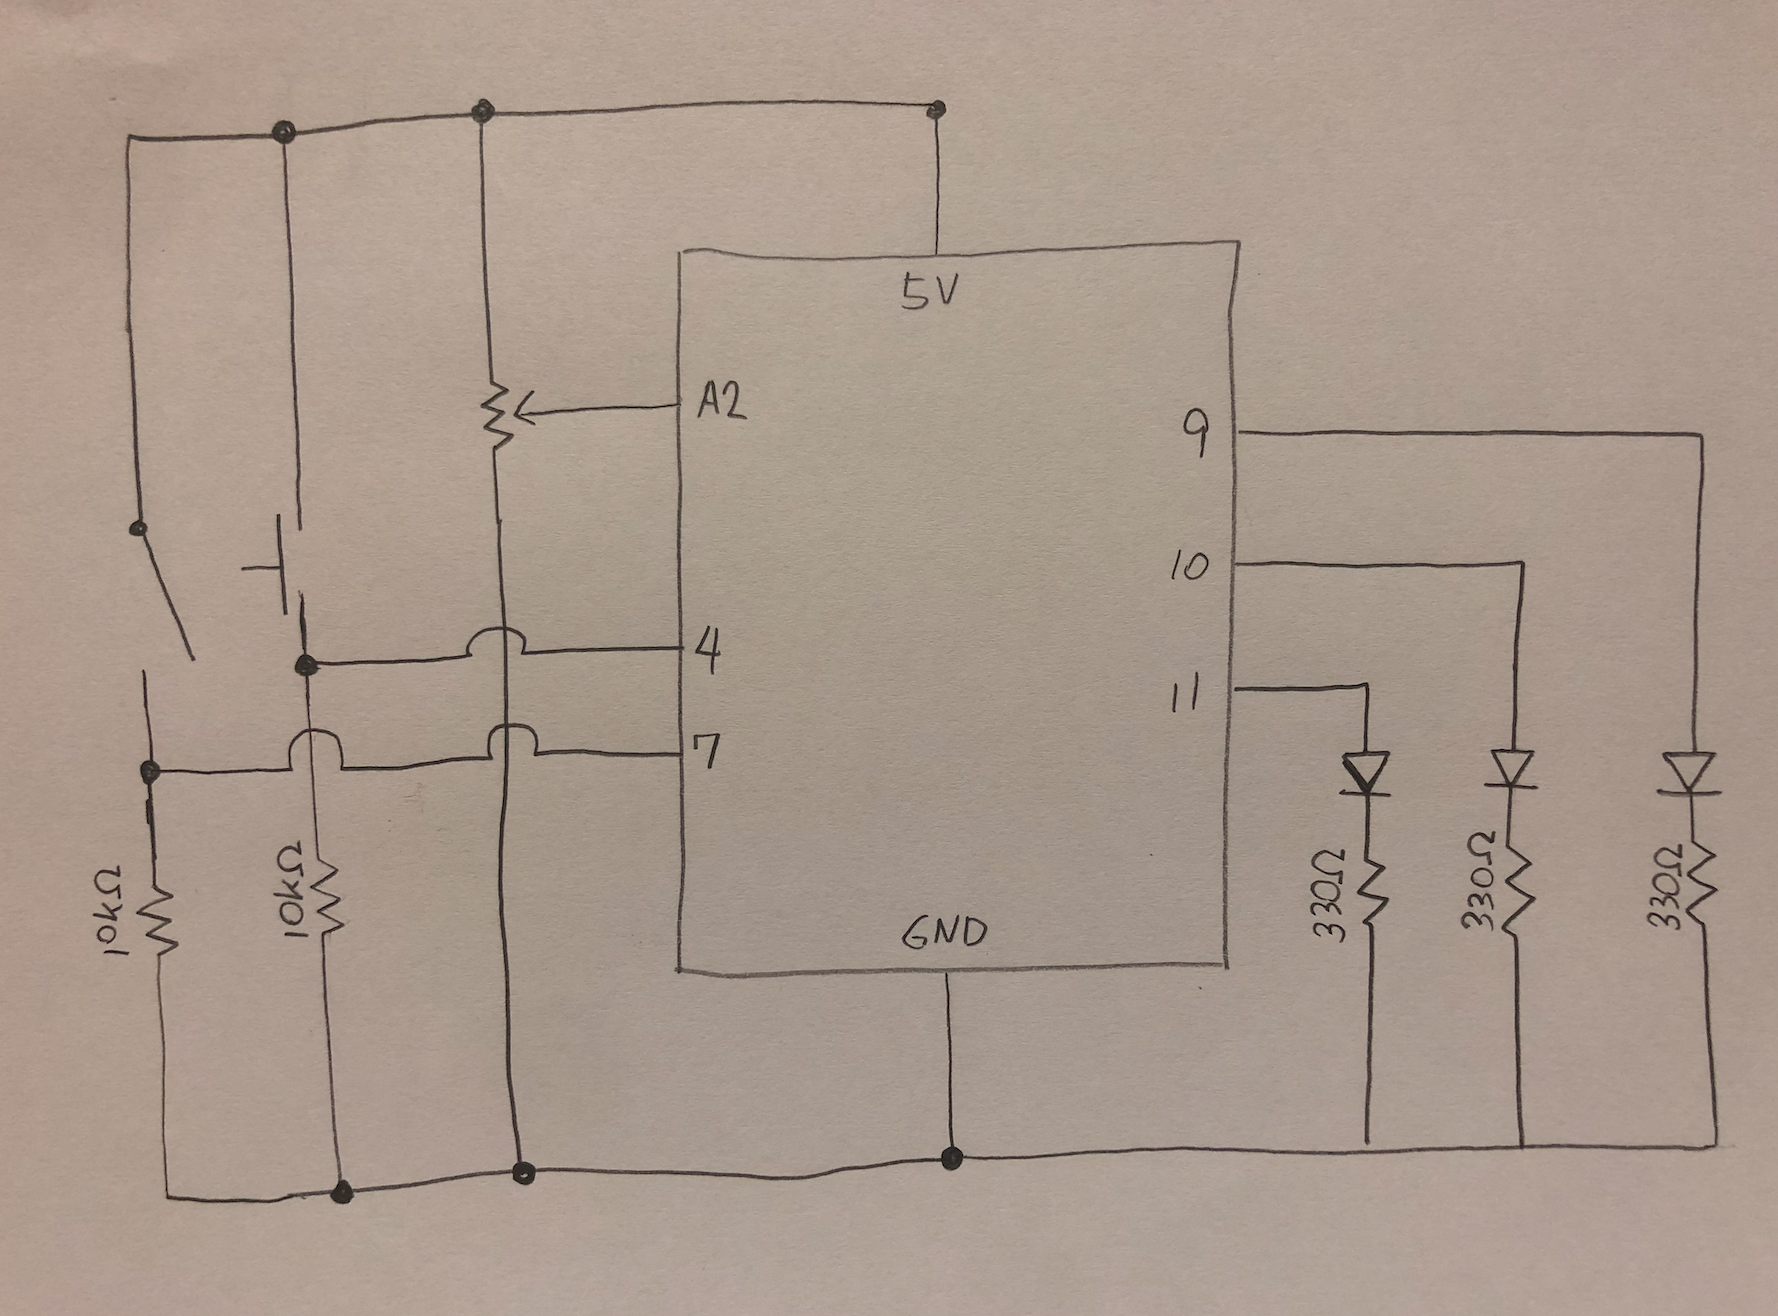 5V
A2
9
10
4
11
7
10kΩ
10kΩ
330Ω
330Ω
330Ω
GND